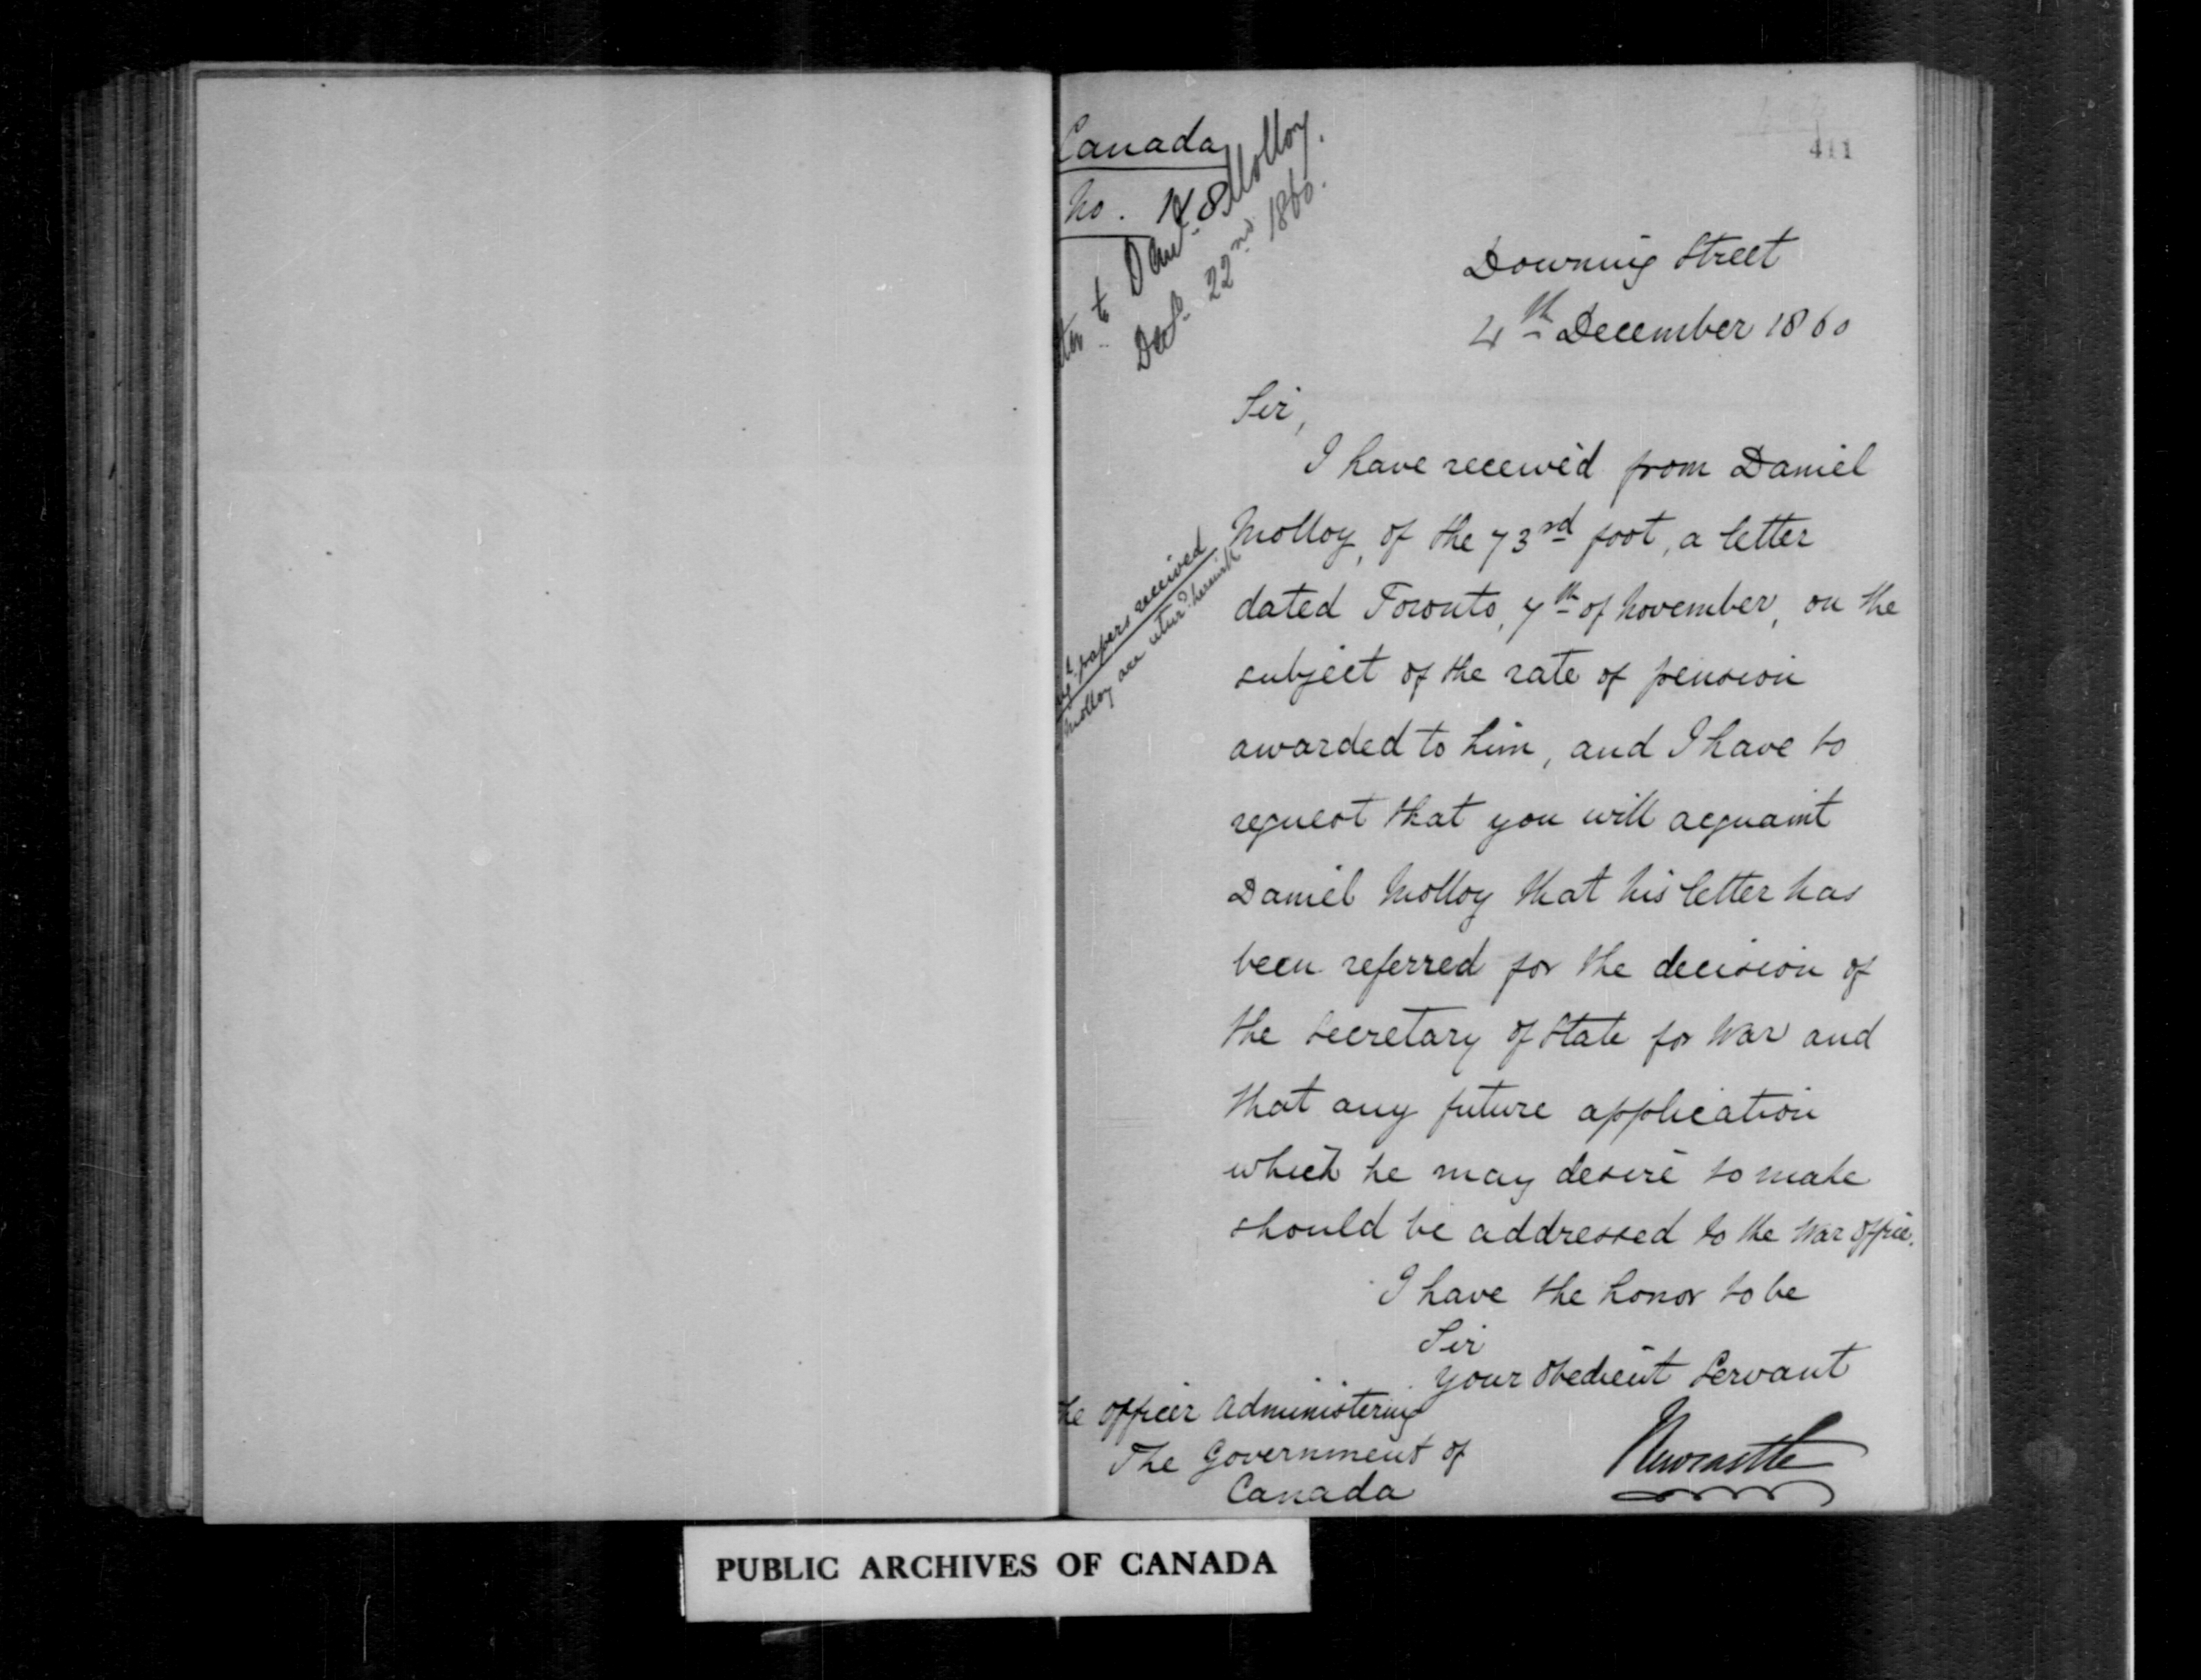 Canada
No. 148
to Danl. Molloy.
Decr. 22nd 1860.
411
Downing Street
4th December 1860
Sir,
I have received from Daniel
Molloy, of the 73rd foot, a letter
dated Toronto, 7th of November, on the
subject of the rate of pension
awarded to him, and I have to
request that you will acquaint
Daniel Molloy that his letter has
been referred for the decision of
the Secretary of State for War and
that any future application
which he may desire to make
should be addressed to the War Office.
papers received
Molloy are herewith
I have the honor to be
Sir
your obedient Servant
Newcastle
The Officer Administering
The Government of
Canada
PUBLIC ARCHIVES OF CANADA